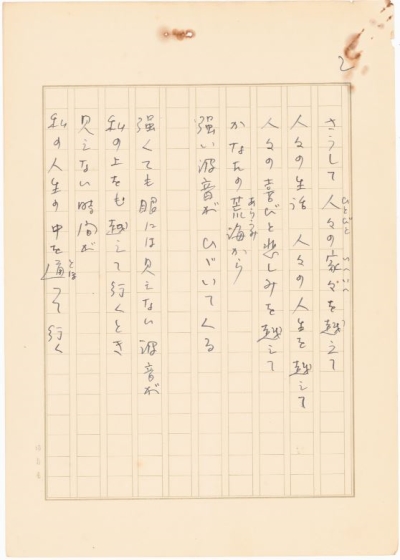 2
さうして 人々の家々を越えて
ひとびと いへいへ
人々の生活 人々の人生を越えて
人々の喜びと悲しみを越えて
かなたの荒海から
あらうみ
強い波音が ひゞいてくる
強くても眼には見えない波音が
私の上をも越えて行くとき
見えない時間が
私の人生の中を通つて行く
とほ